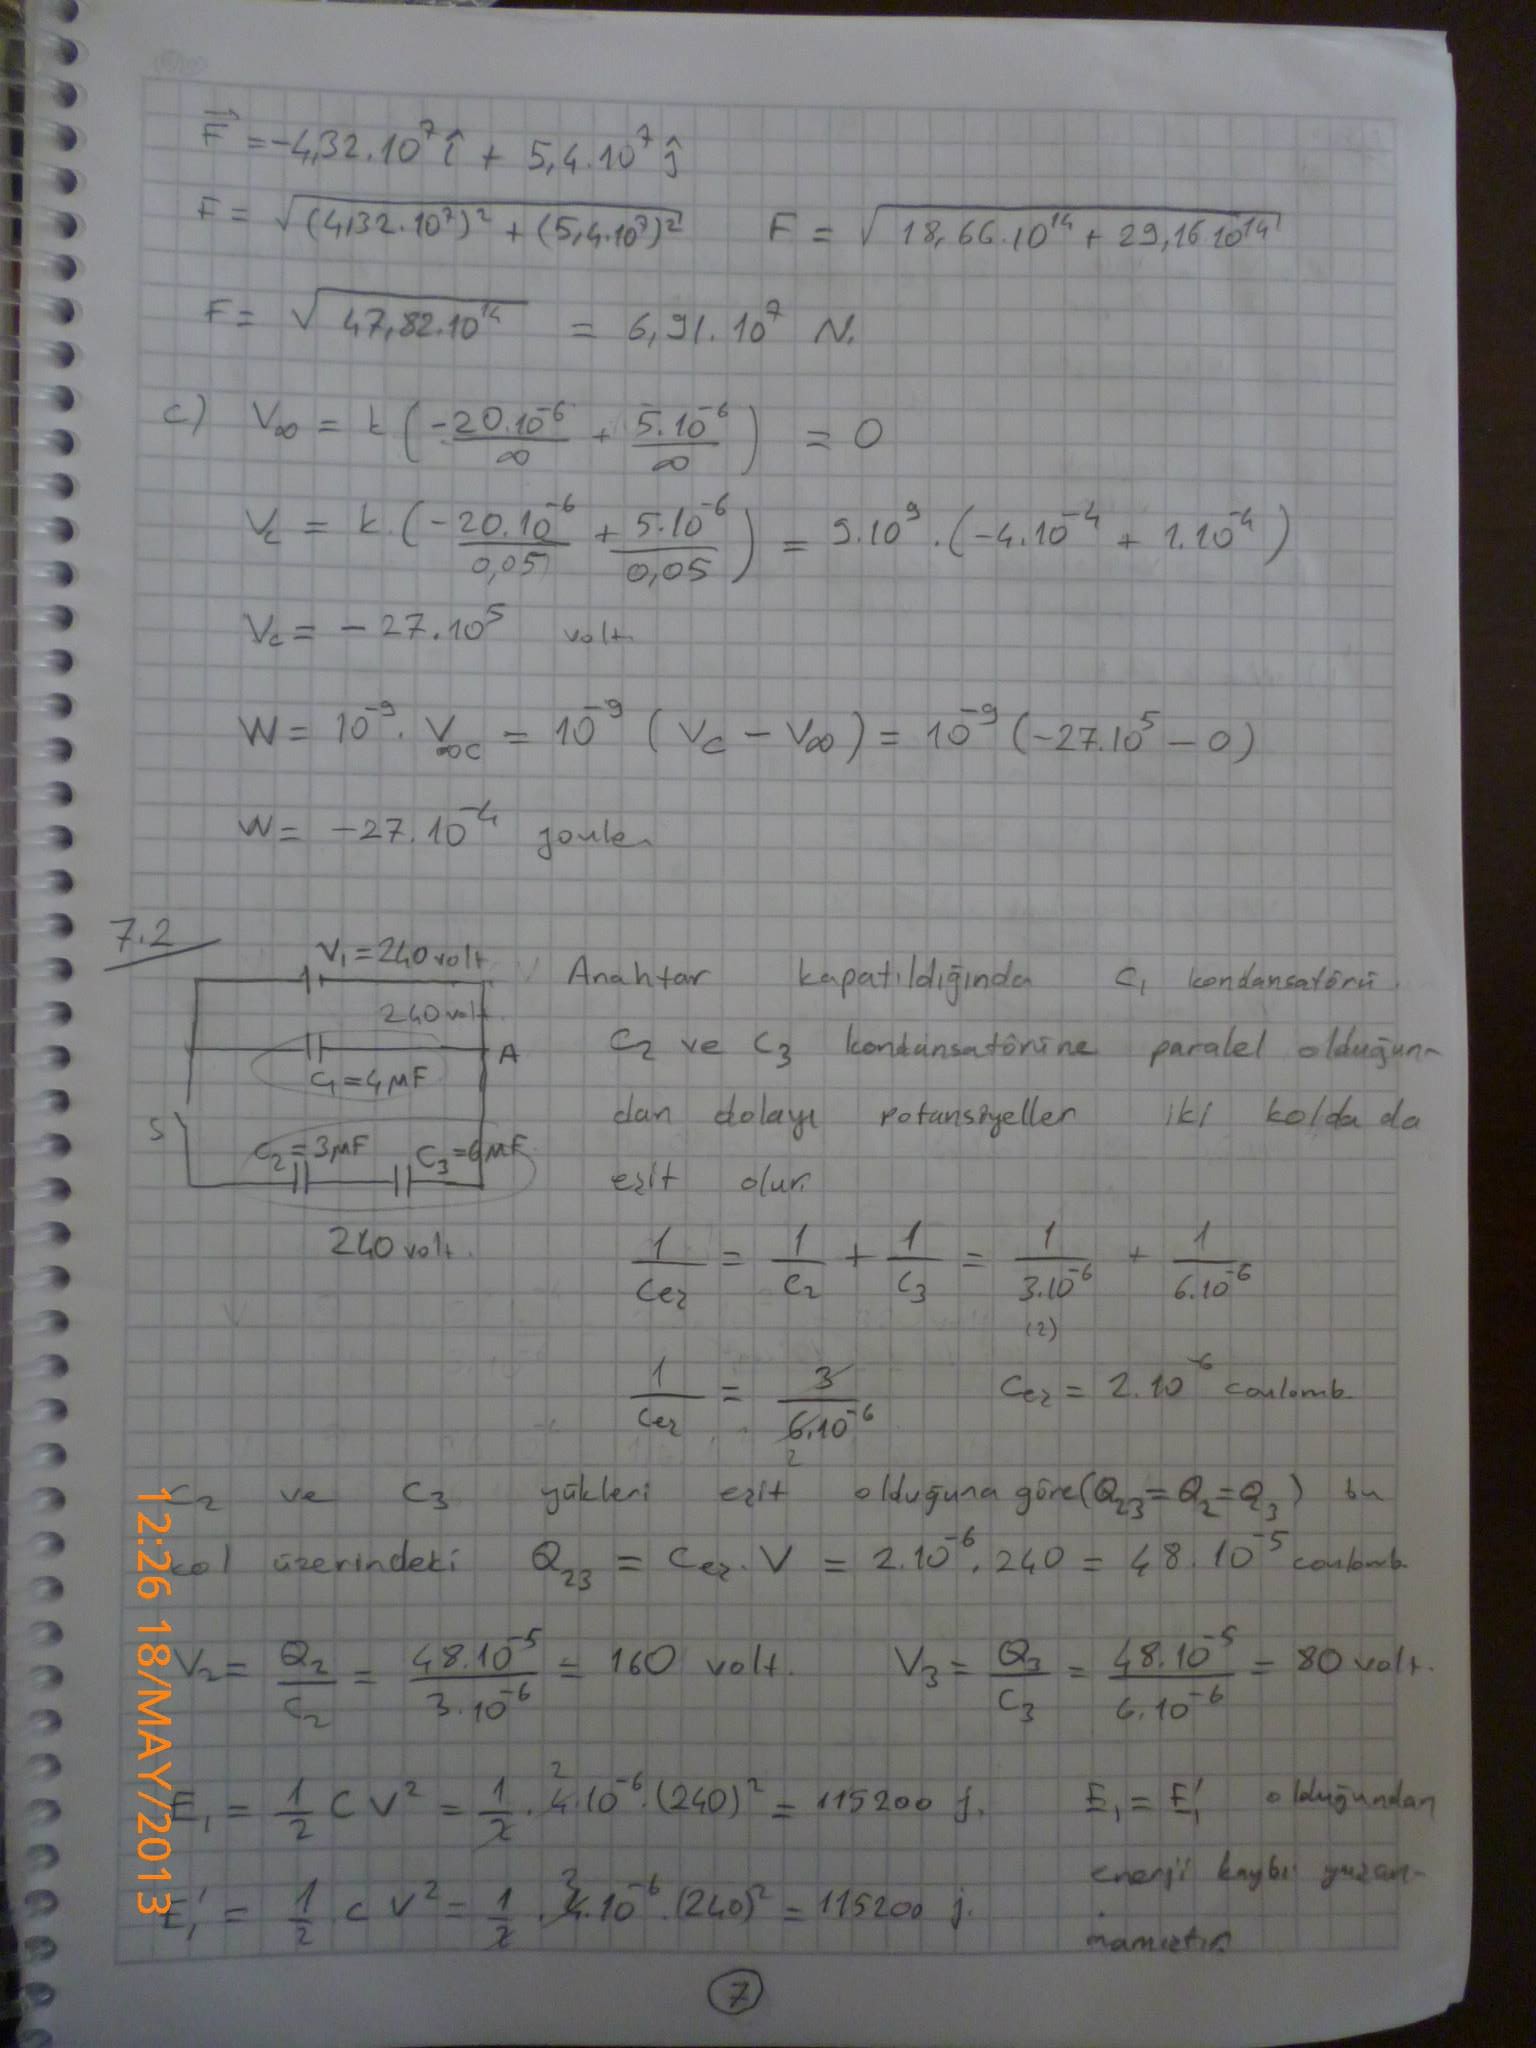 F⃗ = -4,32.10⁷ î + 5,4.10⁷ ĵ
F = √((4,32.10⁷)² + (5,4.10⁷)²) F = √(18,66.10¹⁴ + 29,16.10¹⁴)
F = √(47,82.10¹⁴) = 6,91.10⁷ N.
c) V∞ = k (-20.10⁻⁶/∞ + 5.10⁻⁶/∞) = 0
Vc = k.(-20.10⁻⁶/0,05 + 5.10⁻⁶/0,05) = 9.10⁹.(-4.10⁻⁴ + 1.10⁻⁴)
Vc = -27.10⁵ volt
W = 10⁻⁹. V∞c = 10⁻⁹ (Vc - V∞) = 10⁻⁹ (-27.10⁵ - 0)
W = -27.10⁻⁴ joule.
7.2
V₁ = 240 volt.
240 volt.
A
C₁ = 4 μF
S
C₂ = 3μF C₃ = 6μF
240 volt.
Anahtar kapatıldığında C₁ kondansatörü.
C₂ ve C₃ kondansatörüne paralel olduğun-
dan dolayı potansiyeller iki kolda da
eşit olur.
1/Ceş = 1/C₂ + 1/C₃ = 1/3.10⁻⁶ + 1/6.10⁻⁶
(2)
1/Ceş = 3/6.10⁻⁶ Ceş = 2.10⁻⁶ coulomb.
2
C₂ ve C₃ yükleri eşit olduğuna göre (Q₂₃ = Q₂ = Q₃) bu
kol üzerindeki Q₂₃ = Ceş. V = 2.10⁻⁶.240 = 48.10⁻⁵ coulomb.
V₂ = Q₂/C₂ = 48.10⁻⁵/3.10⁻⁶ = 160 volt. V₃ = Q₃/C₃ = 48.10⁻⁵/6.10⁻⁶ = 80 volt.
2
E₁ = 1/2 C V² = 1/2 . 4.10⁻⁶.(240)² = 115200 j. E₁ = E₁' olduğundan
2
E₁' = 1/2 . C V² = 1/2 . 4.10⁻⁶.(240)² = 115200 j.
enerji kaybı yaşan-
mamıştır.
7
12:26 18/MAY/2013